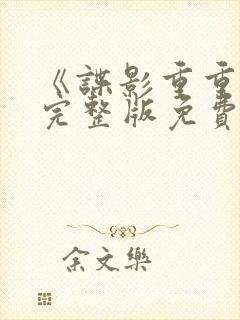 《諜影重重
完整版免費
余文樂